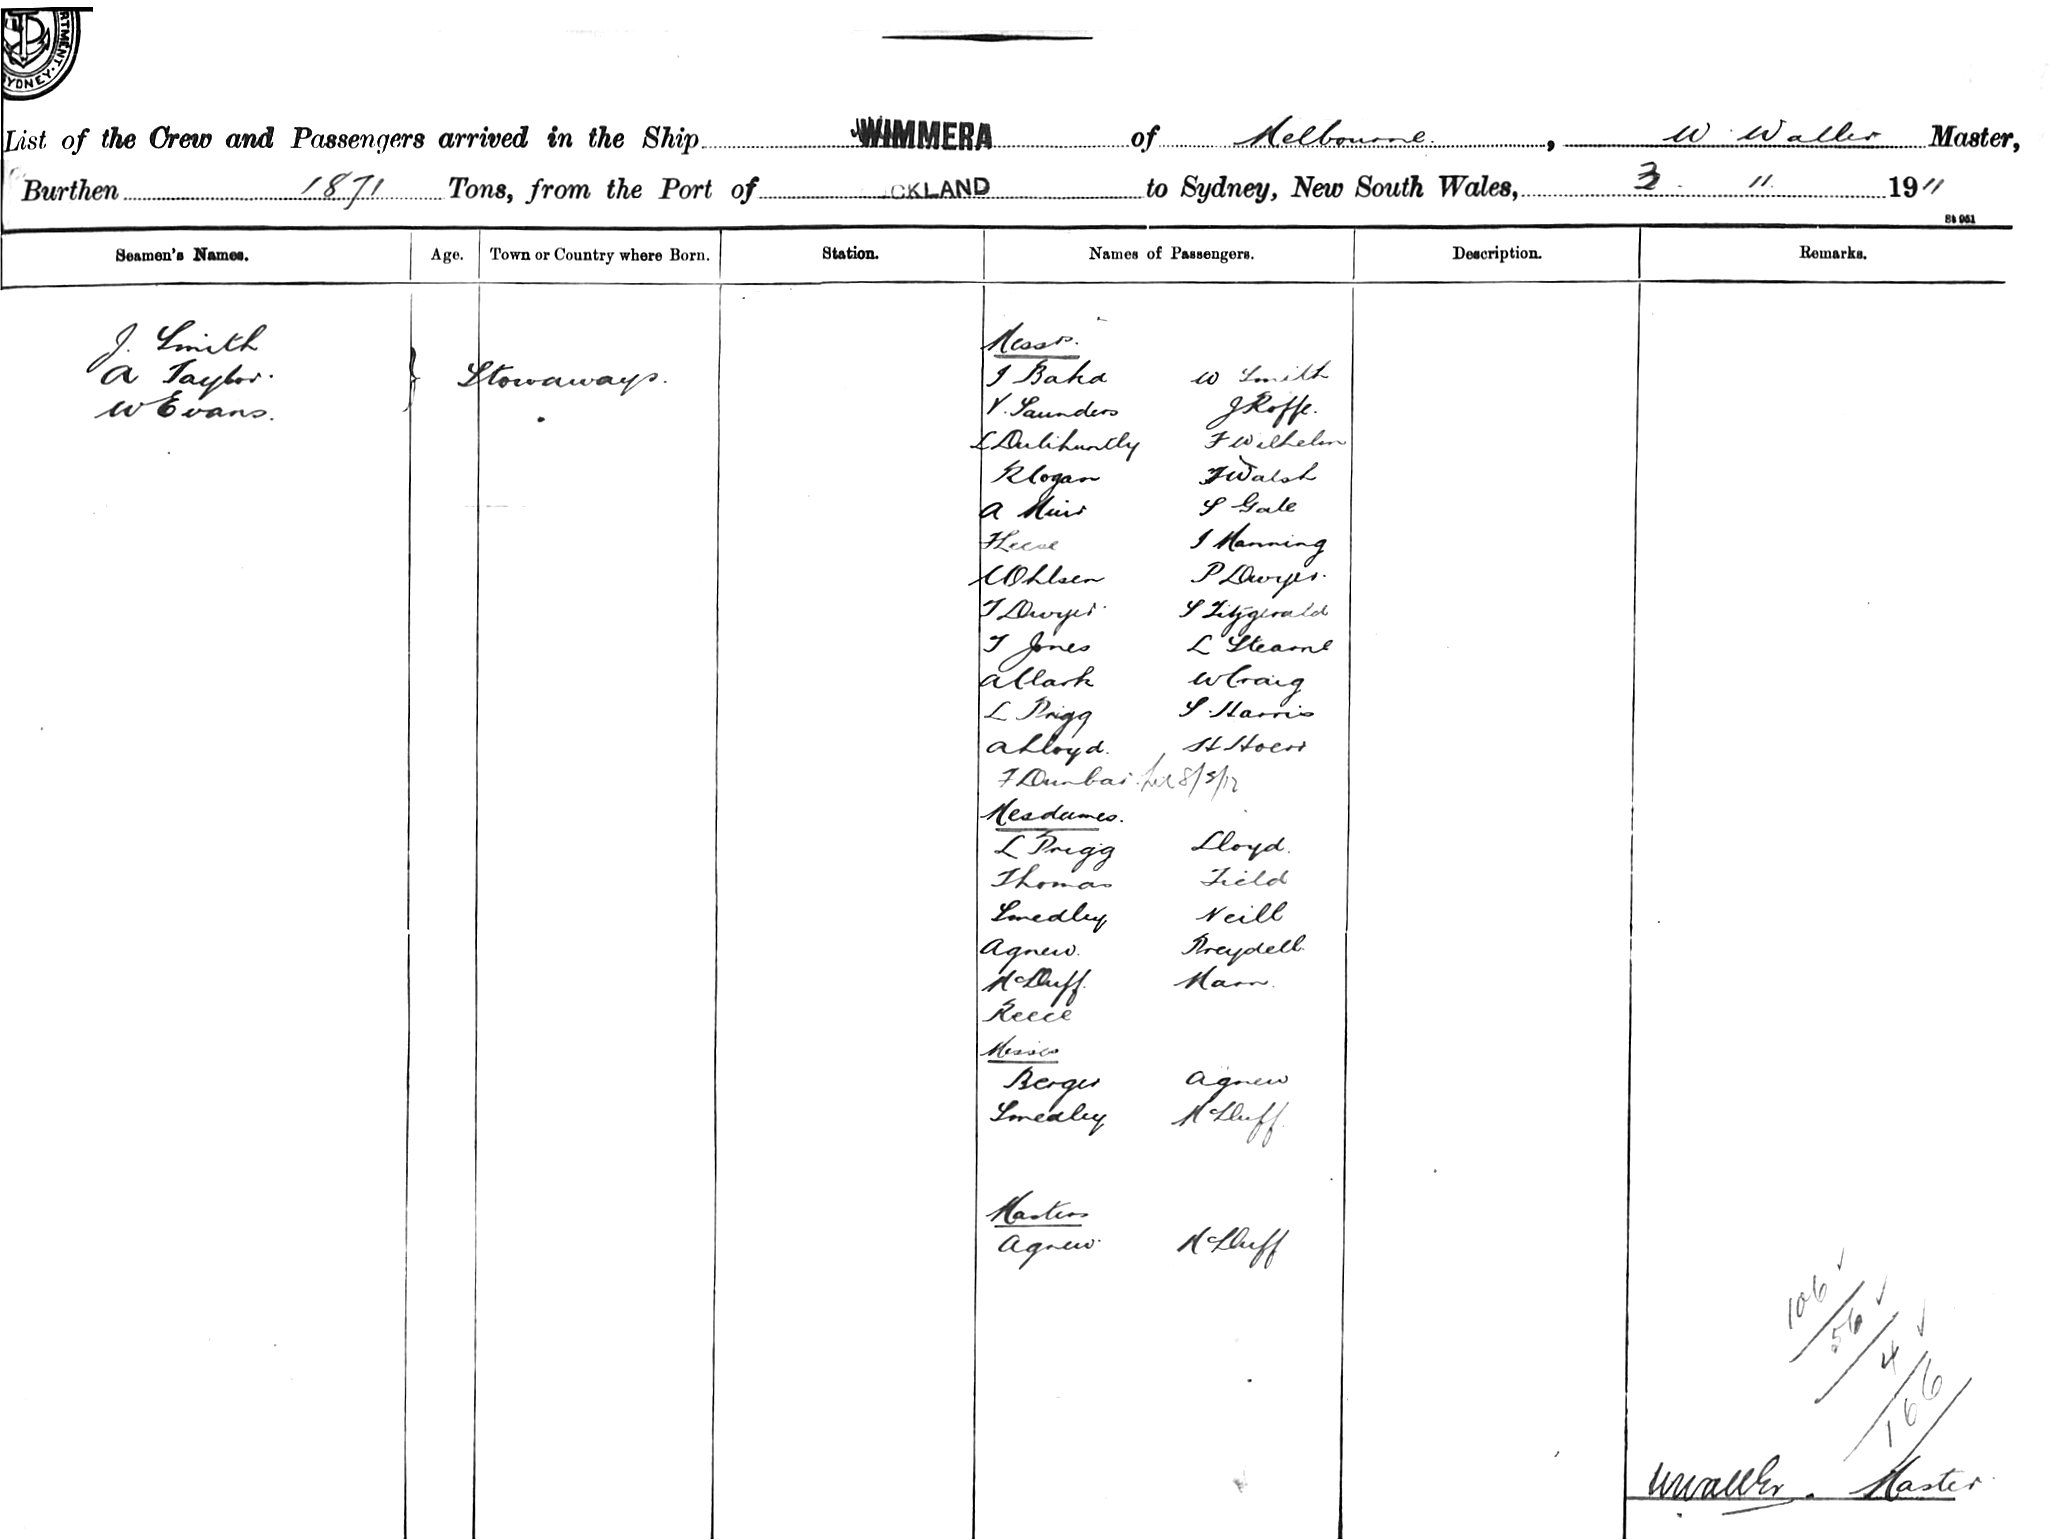 RTMENT. SYDNEY.
List of the Crew and Passengers arrived in the Ship WIMMERA of Melbourne. , W. Waller Master,
Burthen 1871 Tons, from the Port of CKLAND to Sydney, New South Wales, 3 . 11 1911
St 951
Seamen's Names. Age. Town or Country where Born. Station. Names of Passengers. Description. Remarks.
Messrs.
J. Smith
A Taylor. } Stowaways.
W Evans.
W Smith
V. Saunders J Roffe.
L Dulihuntly F Wilhelm
R Logan F Walsh
A Muir S Gale
J Manning
C Ohlsen P Dwyer.
T Dwyer S Fitzgerald
T Jones L Stearne
A Clark W Craig
L Prigg S. Harris
A Lloyd. H
F Dunbar 8/3/12
Mesdames.
L Prigg Lloyd.
Thomas Field
Smedley Neill
Agnew. Preydell.
McDuff. Mann.
Reece
Misses
Berger Agnew
Smedley McDuff.
Masters
Agnew McDuff
106
56
4
166
W Waller. Master.